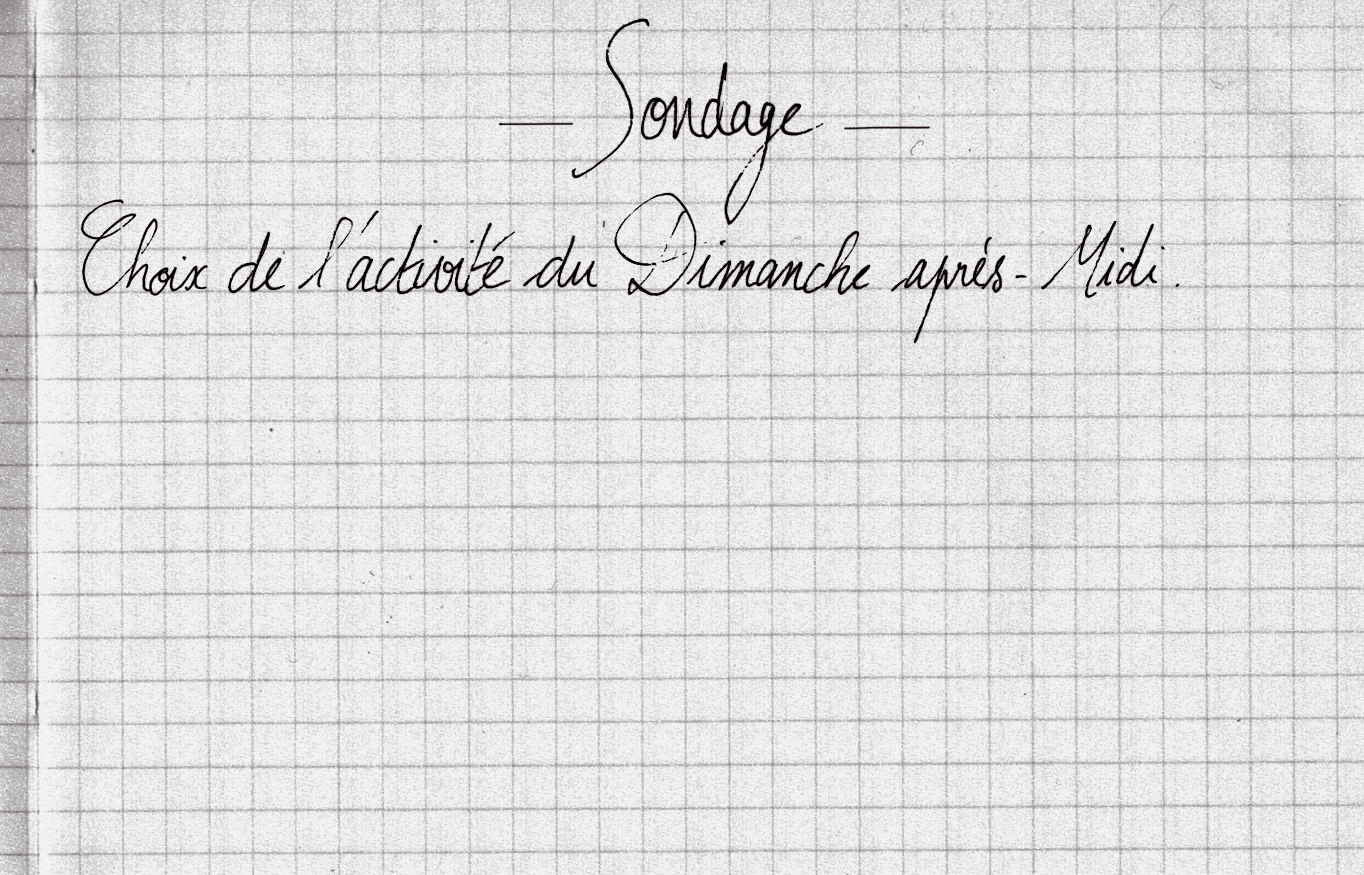 — Sondage —
Choix de l'activité du Dimanche après-Midi.